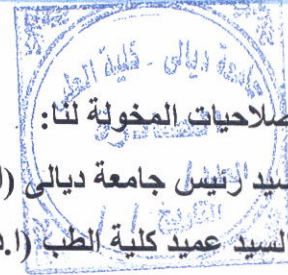 جامعة ديالى - كلية الطب
صلاحيات المخولة لنا:
سيد رئيس جامعة ديالى (ا
السيد عميد كلية الطب (ا.د